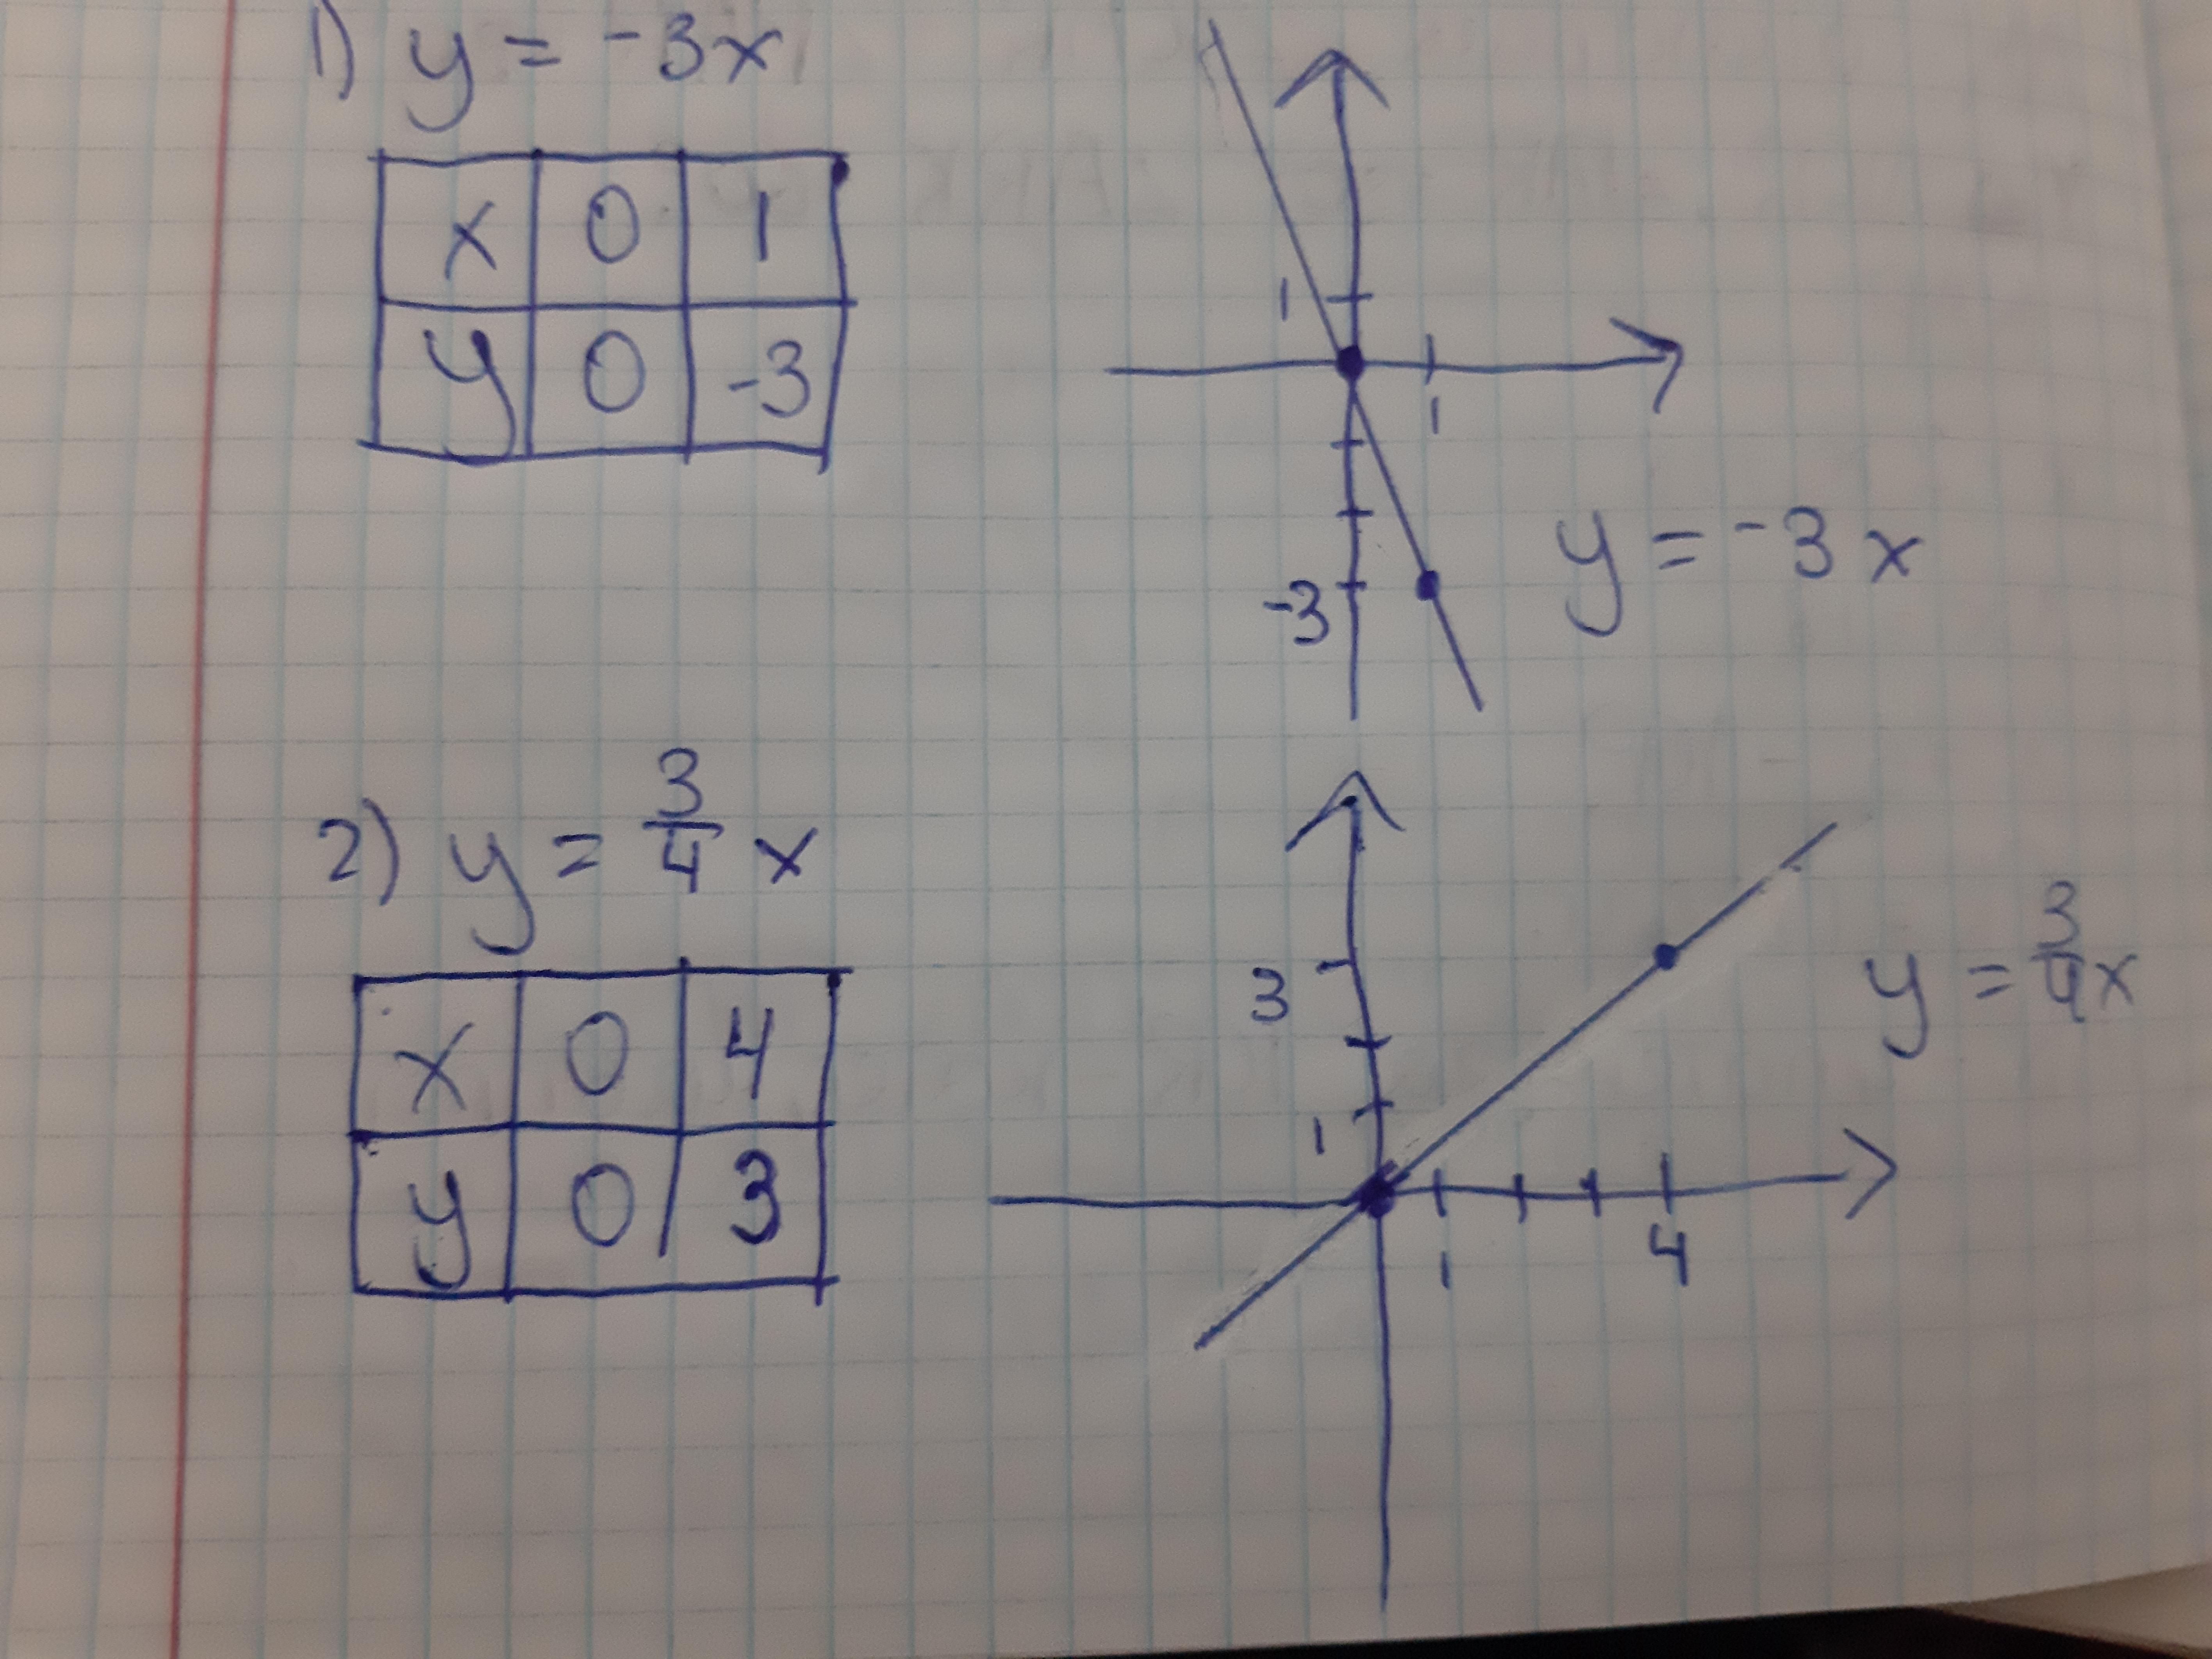 1) y = -3x
x 0 1
y 0 -3
1
1
-3
y = -3x
2) y = 3/4 x
x 0 4
y 0 3
3
1
1
4
y = 3/4 x